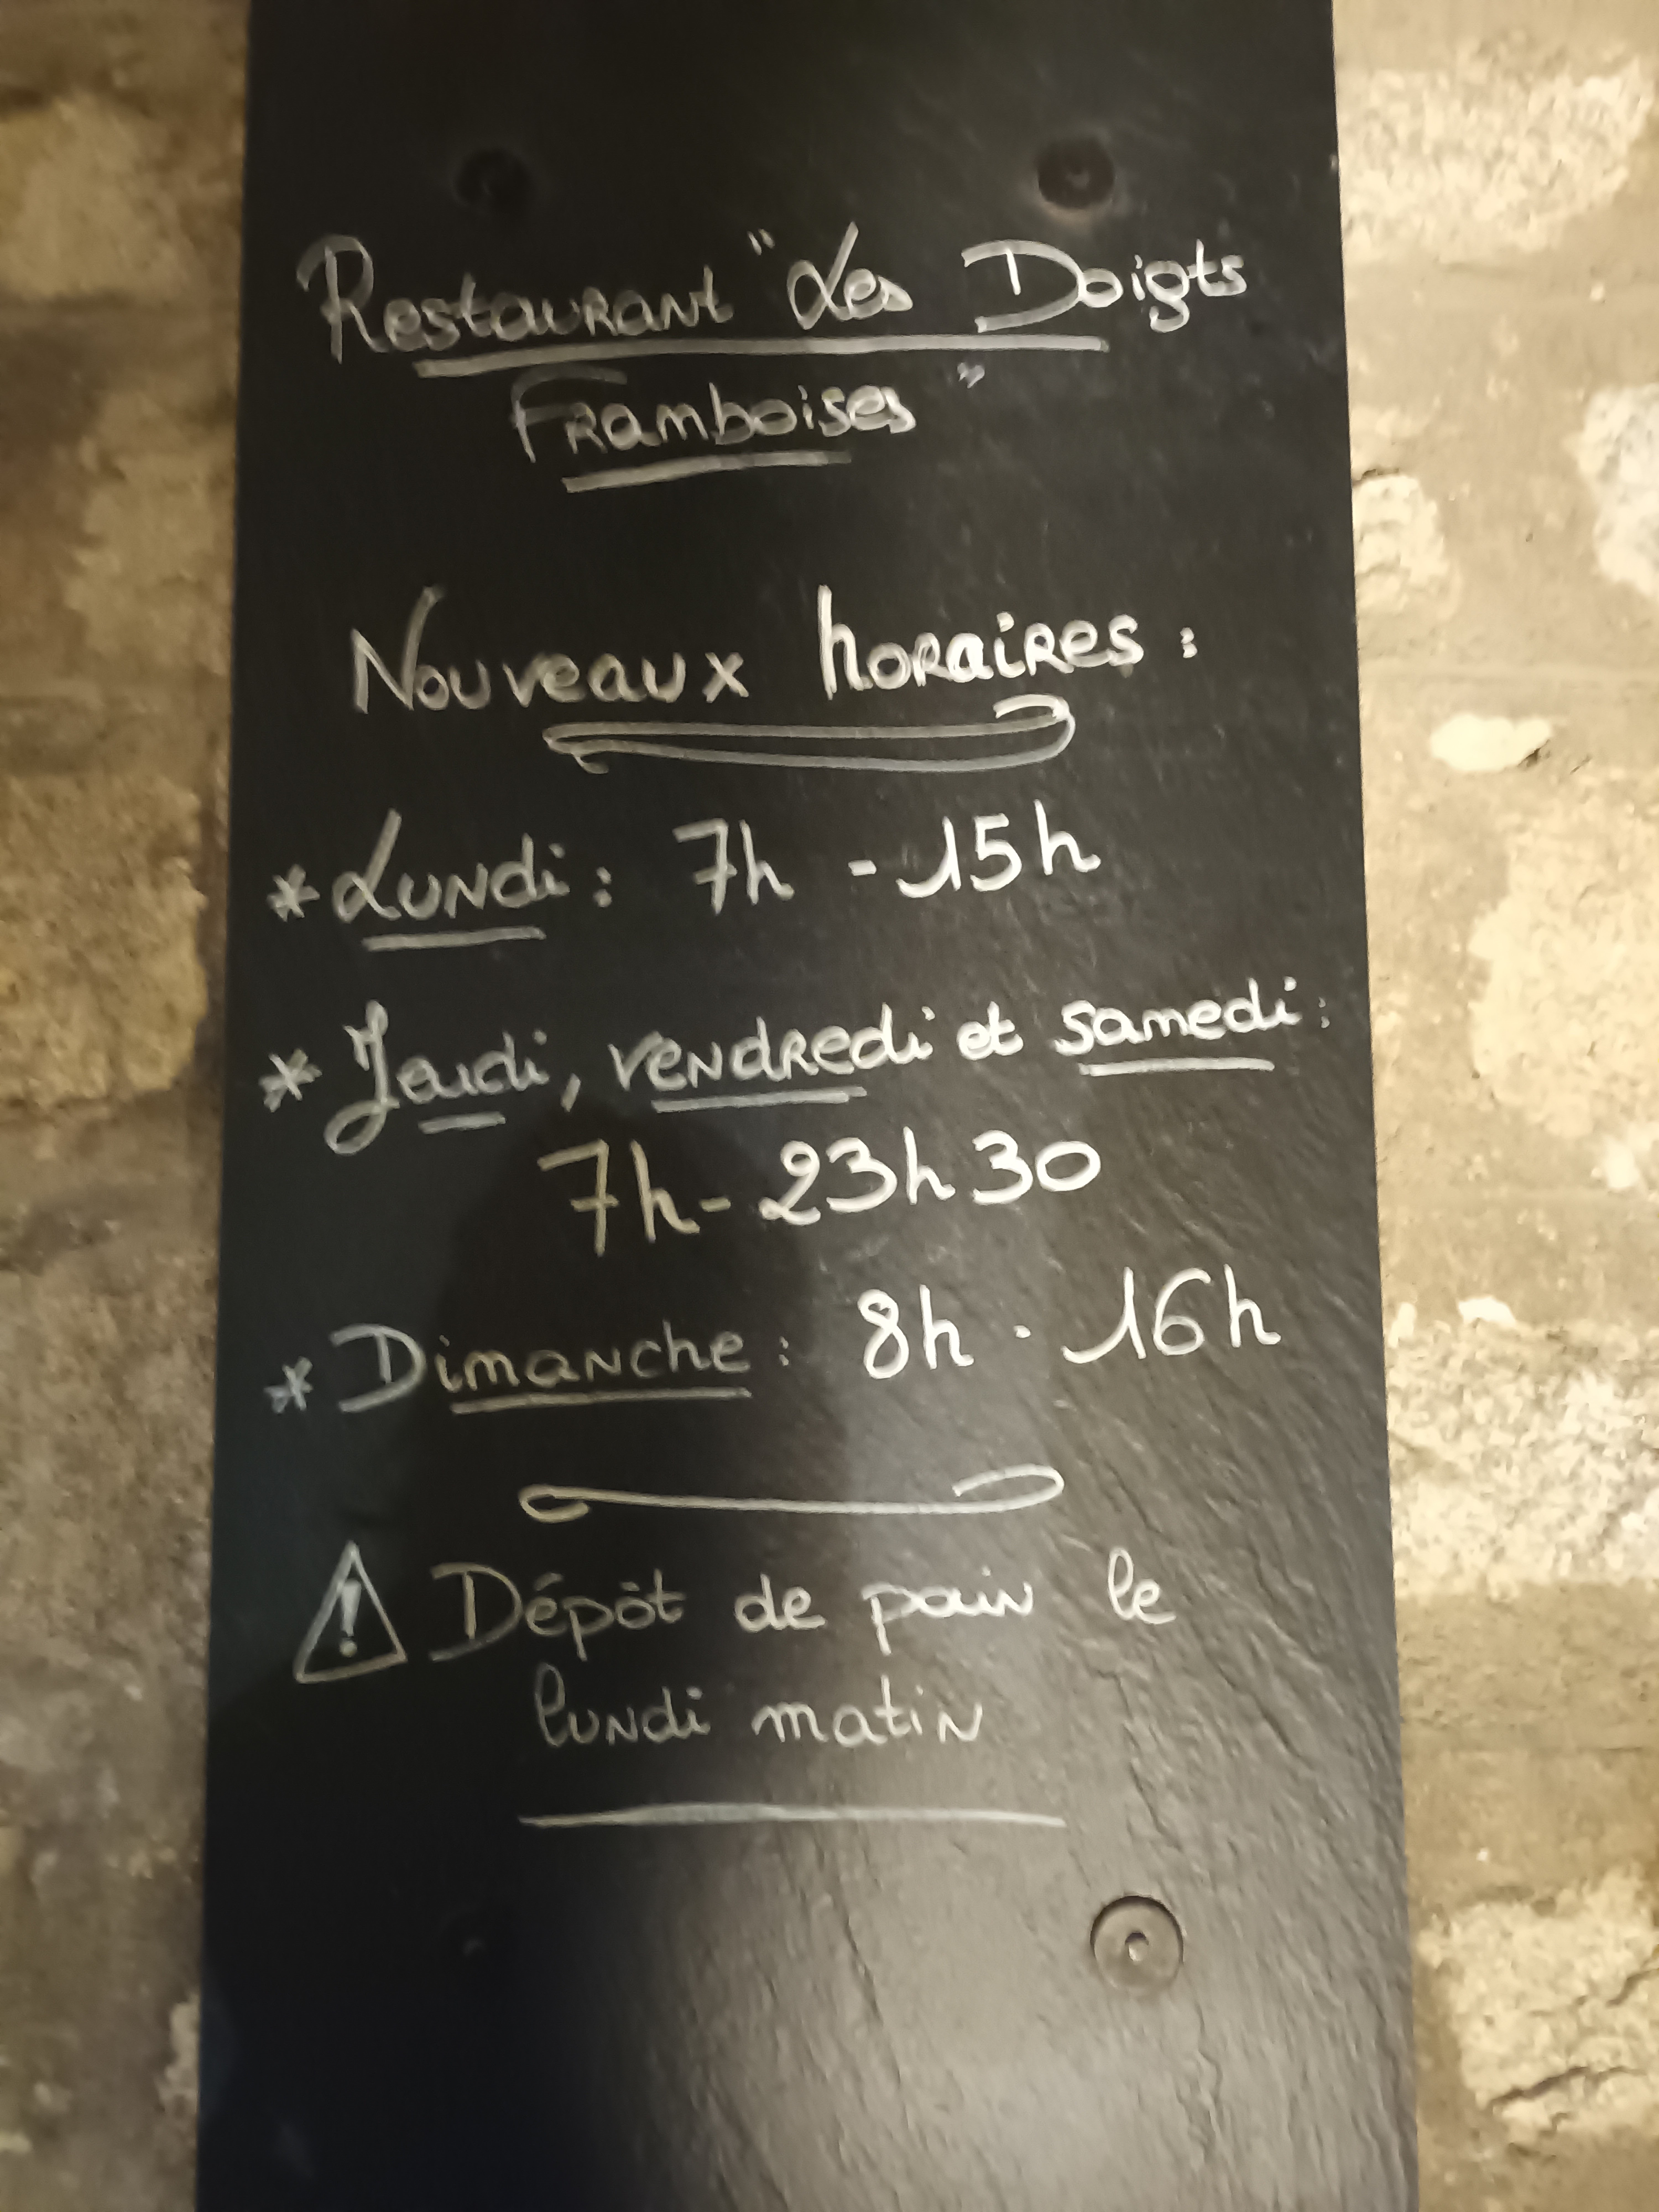 Restaurant "Les Doigts
Framboises"
Nouveaux horaires :
* Lundi : 7h - 15h
* Jeudi, vendredi et samedi :
7h - 23h30
* Dimanche : 8h - 16h
⚠ Dépôt de pain le
lundi matin